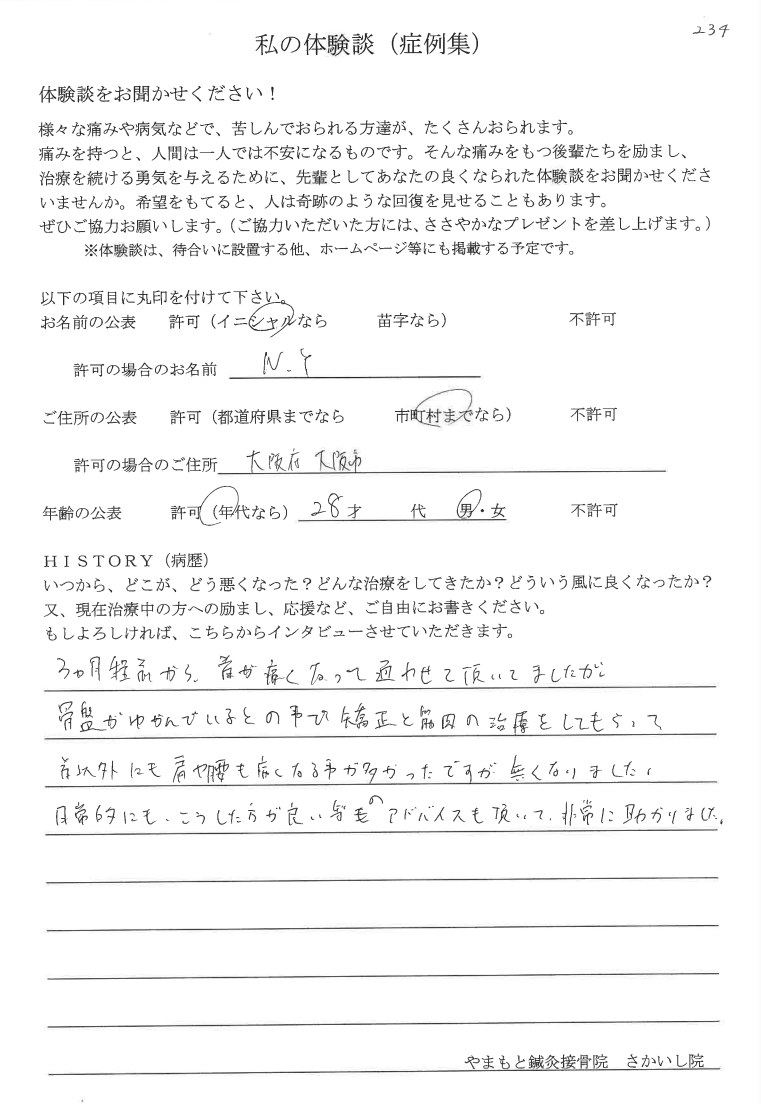 234
私の体験談（症例集）
体験談をお聞かせください！
様々な痛みや病気などで、苦しんでおられる方達が、たくさんおられます。
痛みを持つと、人間は一人では不安になるものです。そんな痛みをもつ後輩たちを励まし、
治療を続ける勇気を与えるために、先輩としてあなたの良くなられた体験談をお聞かせくださ
いませんか。希望をもてると、人は奇跡のような回復を見せることもあります。
ぜひご協力お願いします。（ご協力いただいた方には、ささやかなプレゼントを差し上げます。）
※体験談は、待合いに設置する他、ホームページ等にも掲載する予定です。
以下の項目に丸印を付けて下さい。
お名前の公表 許可（イニシャルなら 苗字なら） 不許可
許可の場合のお名前 N.Y
ご住所の公表 許可（都道府県までなら 市町村までなら） 不許可
許可の場合のご住所 大阪府 大阪市
年齢の公表 許可（年代なら） 28才 代 男・女 不許可
ＨＩＳＴＯＲＹ（病歴）
いつから、どこが、どう悪くなった？どんな治療をしてきたか？どういう風に良くなったか？
又、現在治療中の方への励まし、応援など、ご自由にお書きください。
もしよろしければ、こちらからインタビューさせていただきます。
3ヵ月程前から、首が痛くなって通わせて頂いてましたが
骨盤がゆがんでいるとの事で矯正と筋肉の治療をしてもらって
首以外にも肩や腰も痛くなる事が多かったですが無くなりました。
日常的にも、こうした方が良い等ものアドバイスも頂いて、非常に助かりました。
やまもと鍼灸接骨院 さかいし院